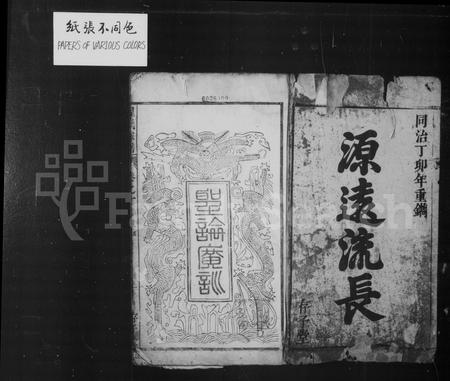 紙張不同色
PAPERS OF VARIOUS COLORS
同治丁卯年重鐫
源遠流長
聖諭廣訓
FamilySearch